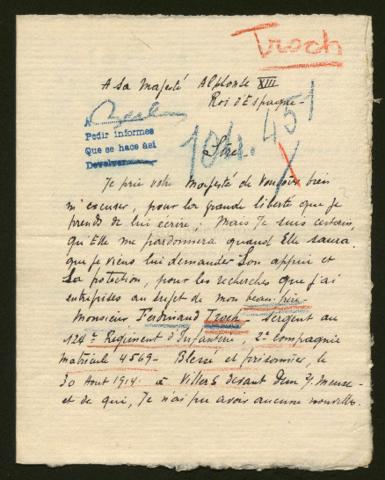 Troch
A Sa Majesté Alphonse XIII
Roi d'Espagne
Pedir informes
Que se hace así
Devolver
104.451
Sire
Je prie votre Majesté de Vouloir bien
m'excuser, pour la grande liberté que je
prends de lui écrire, Mais Je suis certain,
qu'Elle me pardonnera quand Elle saura
que je viens lui demander Son appui et
Sa protection, pour les recherches que j'ai
entreprises au sujet de mon beau père
Monsieur Ferdinand Troch Sergent au
124e Regiment d'Infanterie, 2e Compagnie
matricule 4569 - Blessé et prisonnier, le
30 Aout 1914 - a Villers devant Dun s/ Meuse -
et de qui, Je n'ai pu avoir aucune nouvelle.